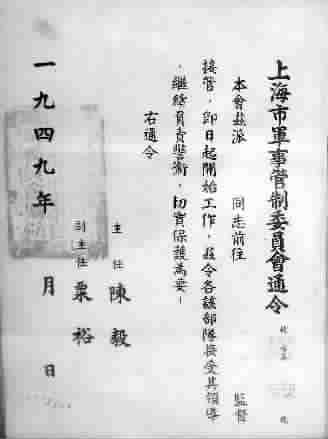 上海市軍事管制委員會通令
號
本會茲派　同志前往　監督
接管，即日起開始工作，茲令各該部隊接受其領導
，繼續負責警衛，切實保護為要！
右通令
主任 陳毅
副主任 粟裕
一九四九年 月 日